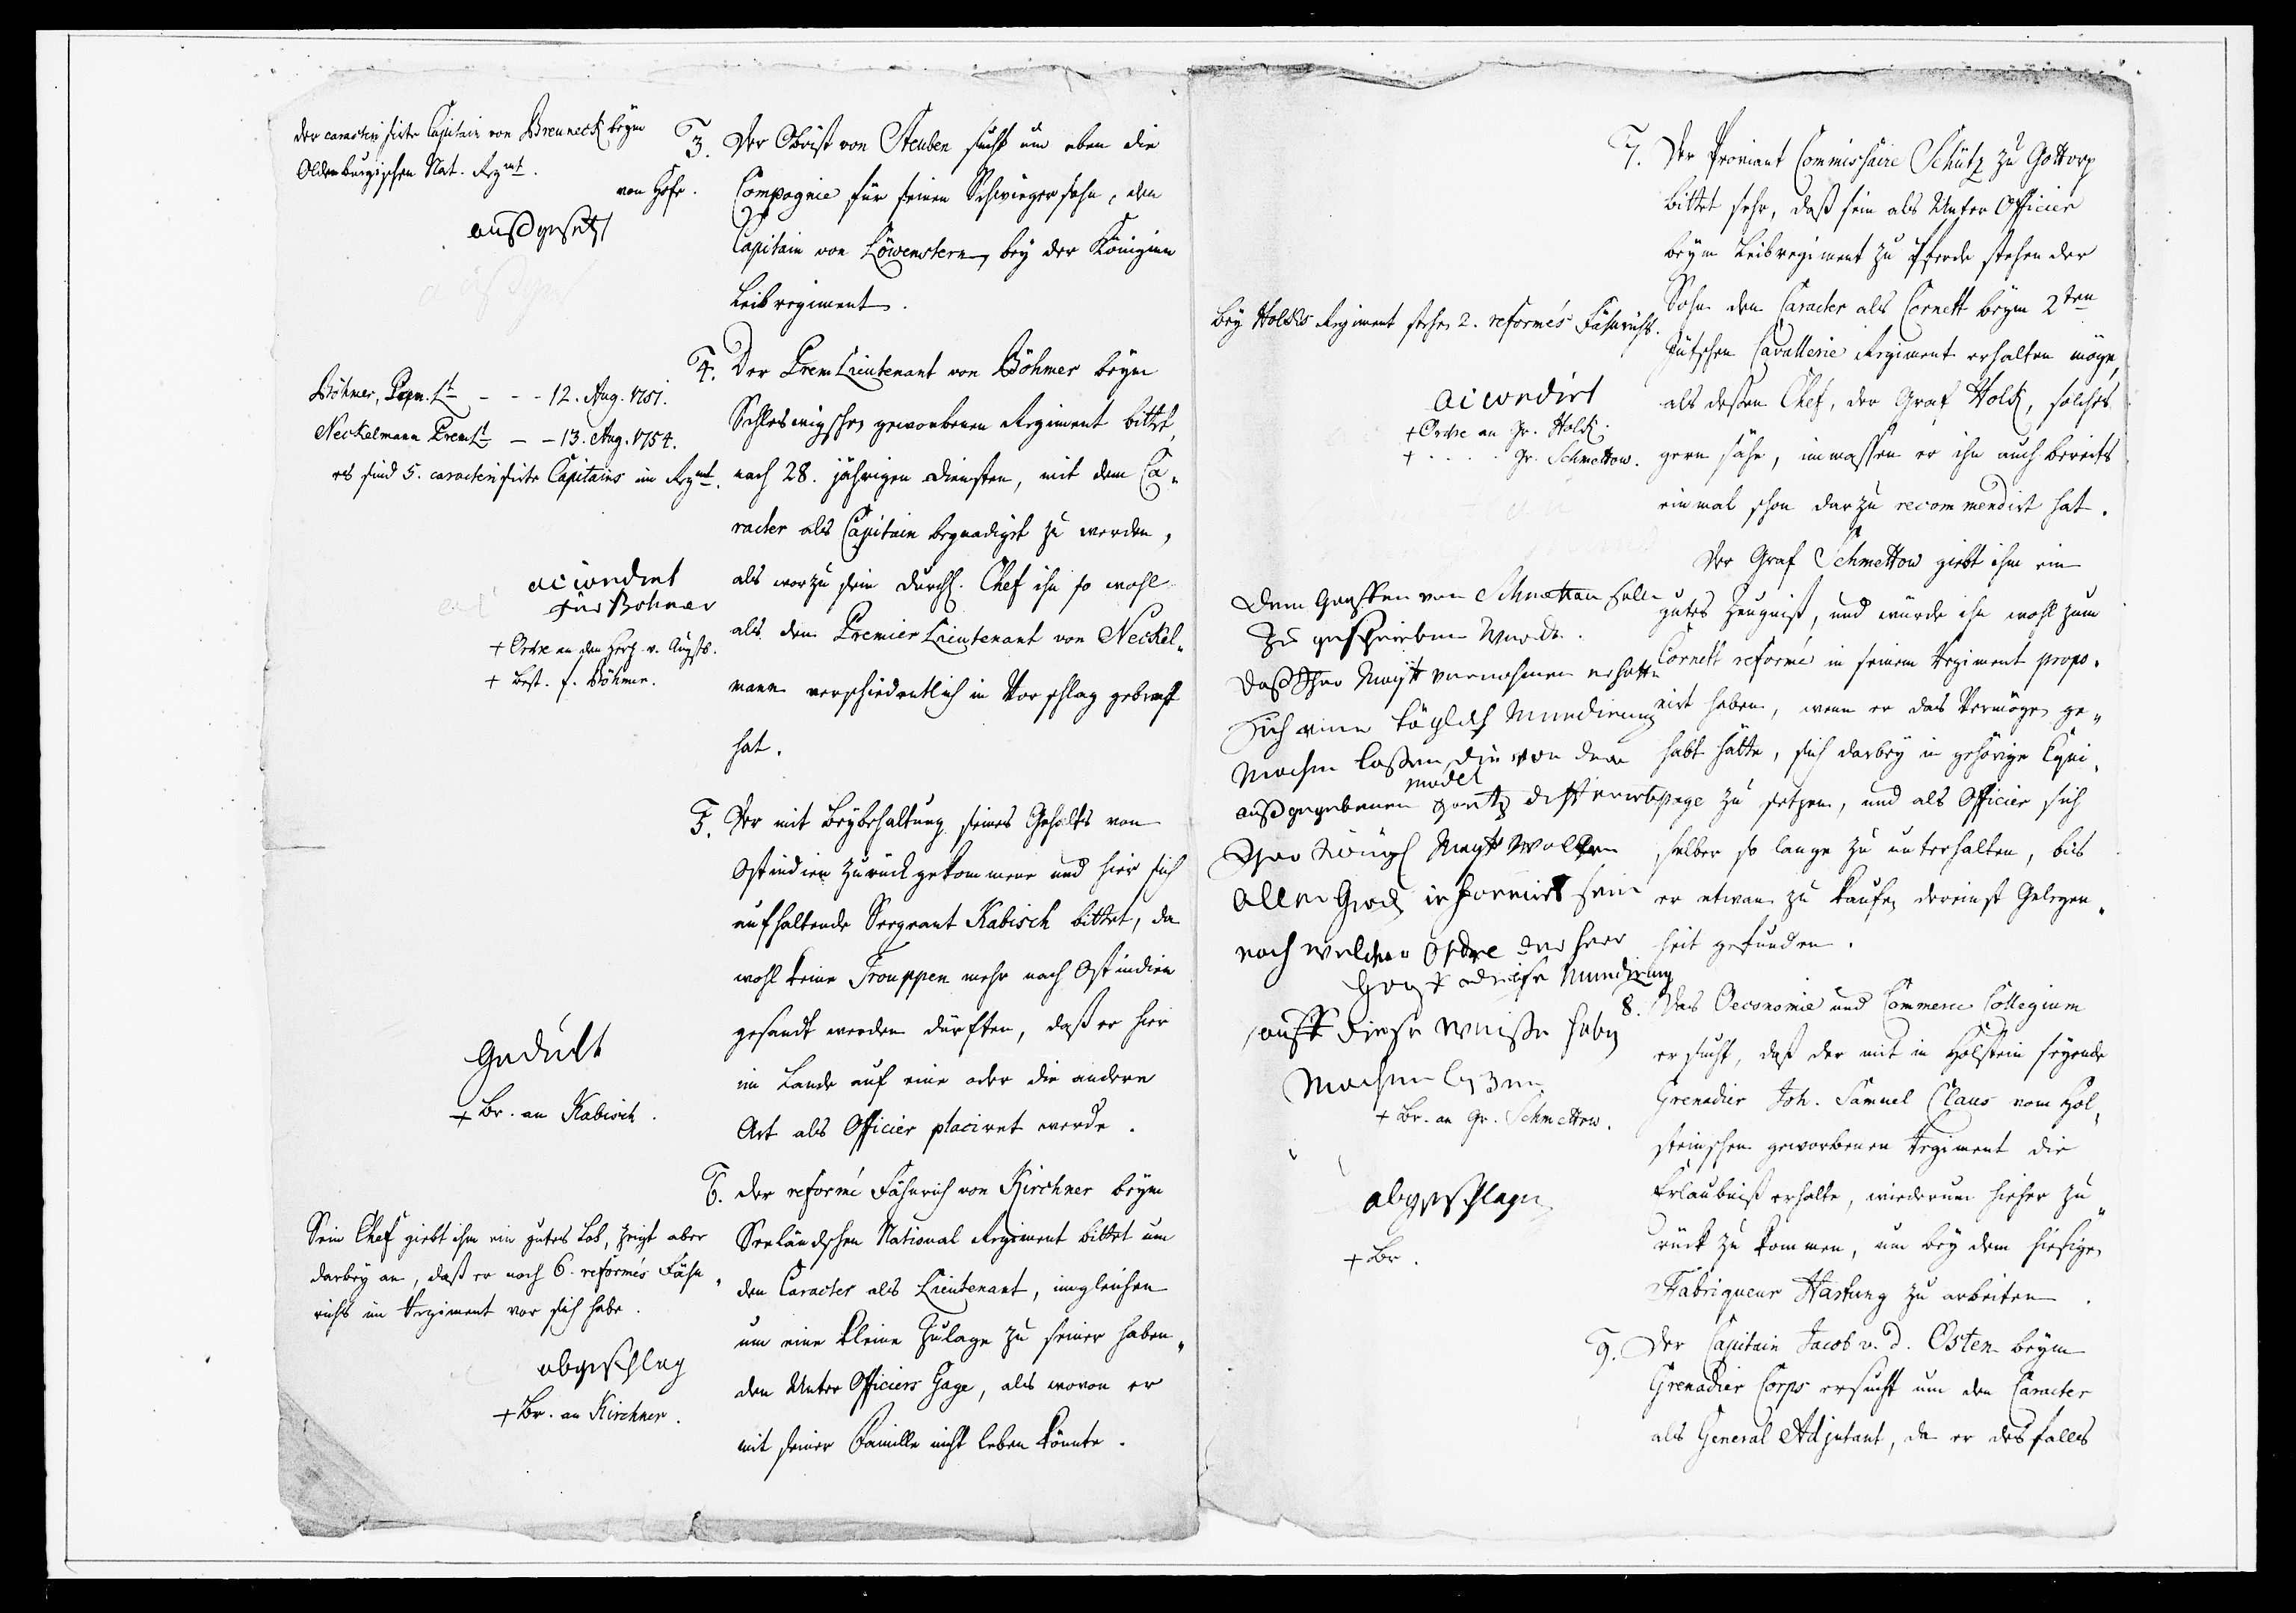 der caracterisirte Capitain von Brenneck beym
Oldenburgischen Nat. Regmt.
von Hofe.
ausgesetzt
Böhmer, Prem. Lt - - - 12. Aug. 1751.
Neckelmann Prem Lt - - 13. Aug. 1754.
es sind 5. caracterisirte Capitains im Regmt.
accordirt
für Bohmer
+ Ordre an den Herz. v. Augstb.
+ Best. f. Böhmer.
Gedult
+ Br. an Kabisch.
Sein Chef giebt ihm ein gutes Lob, zeigt aber
darbey an, daß er noch 6. reformés Fähn„
richs im Regiment vor sich habe.
abgeschlag
+ Br. an Kirchner.
3. Der Obrist von Steuben sucht um eben die
Compagnie für seinen Schwiegersohn, den
Capitain von Löwenstern, bey der Königinn
Leibregiment.
4. Der Prem Lieutenant von Böhmer beym
Schleswigschen geworbenen Regiment bittet,
nach 28. jährigen Diensten, mit dem Ca„
racter als Capitain begnadigt zu werden,
als worzu sein Durchl. Chef ihn so wohl
als den Premier Lieutenant von Neckel„
mann verschiedentlich in Vorschlag gebracht
hat.
5. Der mit Beybehaltung seines Gehalts von
Ostindien zurückgekommene und hier sich
aufhaltende Sergeant Kabisch bittet, da
wohl keine Trouppen mehr nach Ostindien
gesandt werden dürften, daß er hier
im Lande auf eine oder die andere
Art als Officier placiret werde.
6. der reformé Fähnrich von Kirchner beym
Seeländschen National Regiment bittet um
den Caracter als Lieutenant, imgleichen
um eine kleine Zulage zu seiner haben„
den Unter Officiers Gage, als wovon er
mit seiner Famille nicht leben könnte.
bey Holcks Regiment stehen 2. reformés Fähnrichs.
accordirt
+ Ordre an Gr. Holck.
+ . . . . Gr. Schmettow.
Dem Graffen von Schmettau soll
zu geschrieben werde.
daß Ihro Maytt vernohmen er hette
sich eine Mundirung
machen laßen die von dem
model
ausgegebenen gantz different
Ihro Königl Mayt wollen
informirt sein
nach welcher Ordre der Herr
Mundirung
auff diese weiße habe
machen laßen
+ Br. an Gr. Schmettow.
abgeschlagen
+ Br.
7. Der Proviant Commissaire Schütz zu Gottorp
bittet sehr, daß sein als Unter Officier
beym Leibregiment zu Pferde stehender
Sohn den Caracter als Cornett beym 2ten
Jütschen Cavallerie Regiment erhalten möge,
als deßen Chef, der Graf Holck, solches
gern sähe, immaßen er ihn auch bereits
einmal schon darzu recommendirt hat.
Der Graf Schmettow giebt ihm ein
gutes Zeugniß, und würde ihn wohl zum
Cornett reformé in seinem Regiment propo„
nirt haben, wenn er das Vermögen ge„
habt hätte, sich darbey in gehörige Equi„
page zu setzen, und als Officier sich
selber so lange zu unterhalten, bis
er etwan zu kaufen dereinst Gelegen„
heit gefunden.
8. Das Oeconomie und Commerce Collegium
ersucht, daß der mit in Holstein seyende
Grenadier Joh. Samuel Claus vom Hol„
steinschen geworbenen Regiment die
Erlaubniß erhalte, wiederum hieher zu„
rück zu kommen, um bey dem hiesigen
Fabriqueur Hartung zu arbeiten.
9. Der Capitain Jacob v. d. Osten beym
Grenadier Corps ersucht um den Caracter
als General Adjutant, da er desfalls